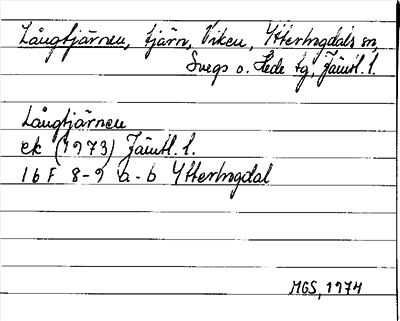 Långtjärnen, tjärn, Viken, Ytterhogdals sn,
Svegs o. Hede tg, Jämtl. l.
Långtjärnen
ek (1973) Jämtl. l.
16 F 8-9 a-b Ytterhogdal
MGS, 1974